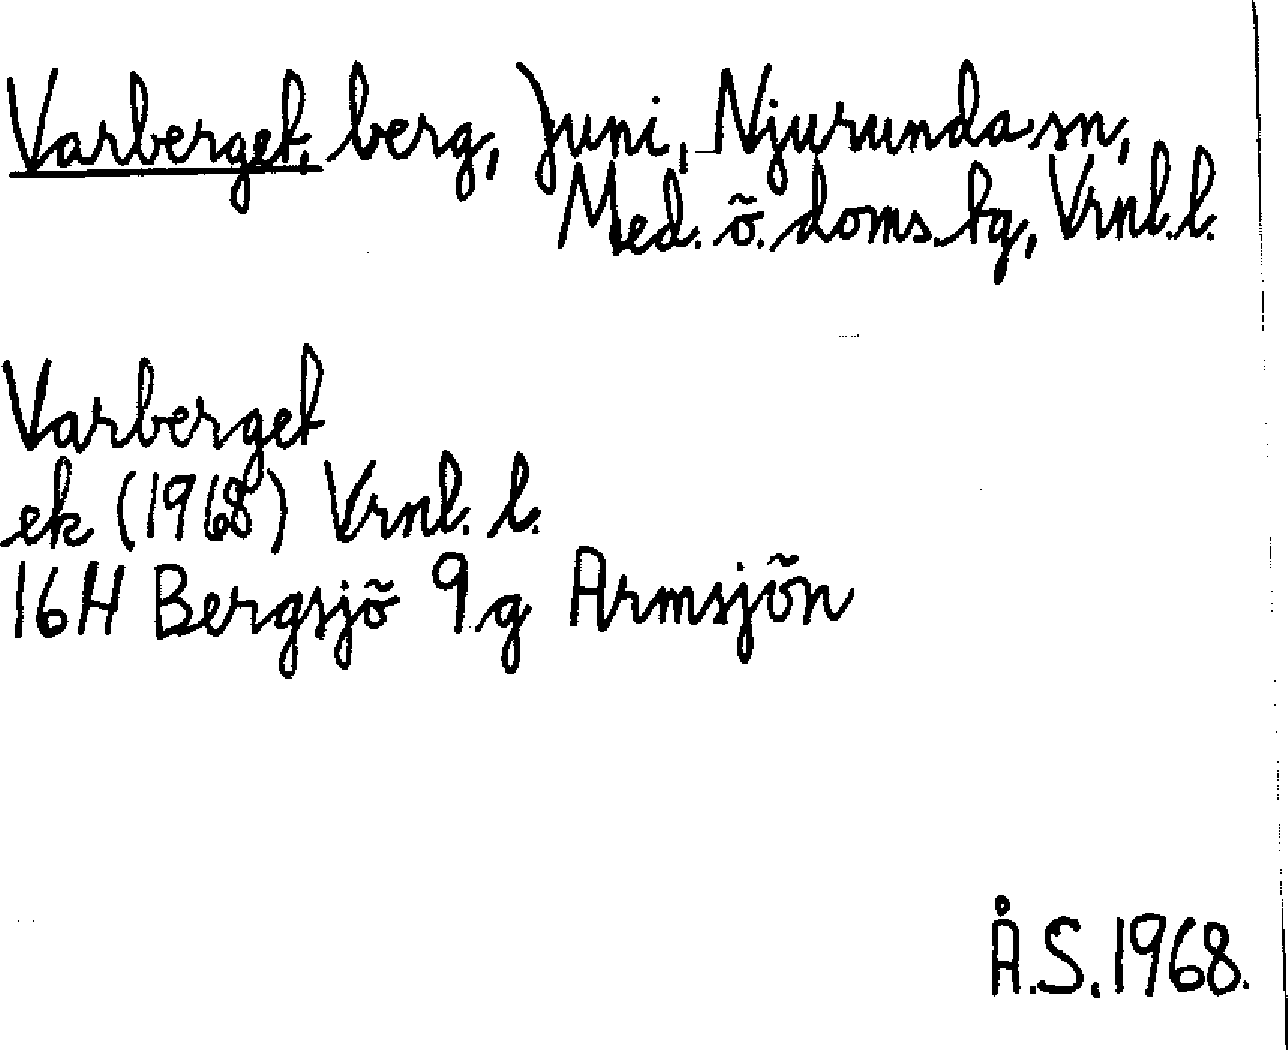 Varberget, berg, Juni, Njurunda sn,
Med. ö. doms. hg, Vrnl. l.
Varberget
ek (1968) Vrnl. l.
16H Bergsjö 9 g Armsjön
Å.S. 1968.